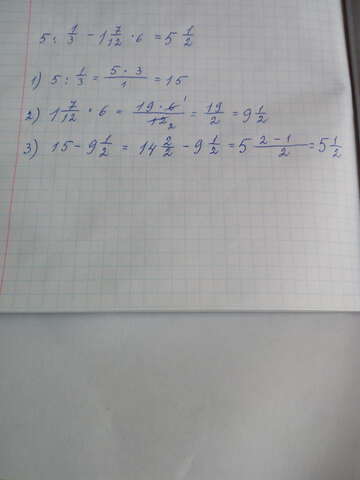 5 : 1/3 - 1 7/12 · 6 = 5 1/2
1) 5 : 1/3 = 5 · 3/1 = 15
2) 1 7/12 · 6 = 19 · 6 1/12 2 = 19/2 = 9 1/2
3) 15 - 9 1/2 = 14 2/2 - 9 1/2 = 5 2-1/2 = 5 1/2